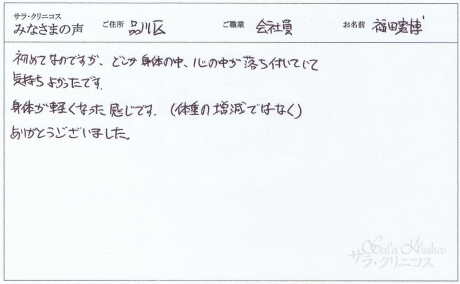 サラ・クリニコス
みなさまの声 ご住所 品川区 ご職業 会社員 お名前 福田宏博
初めてなのですが、どこか身体の中、心の中が落ち付いていて
気持ちよかったです。
身体が軽くなった感じです。(体重の増減ではなく)
ありがとうございました。
Sala Klinikos
サラ・クリニコス